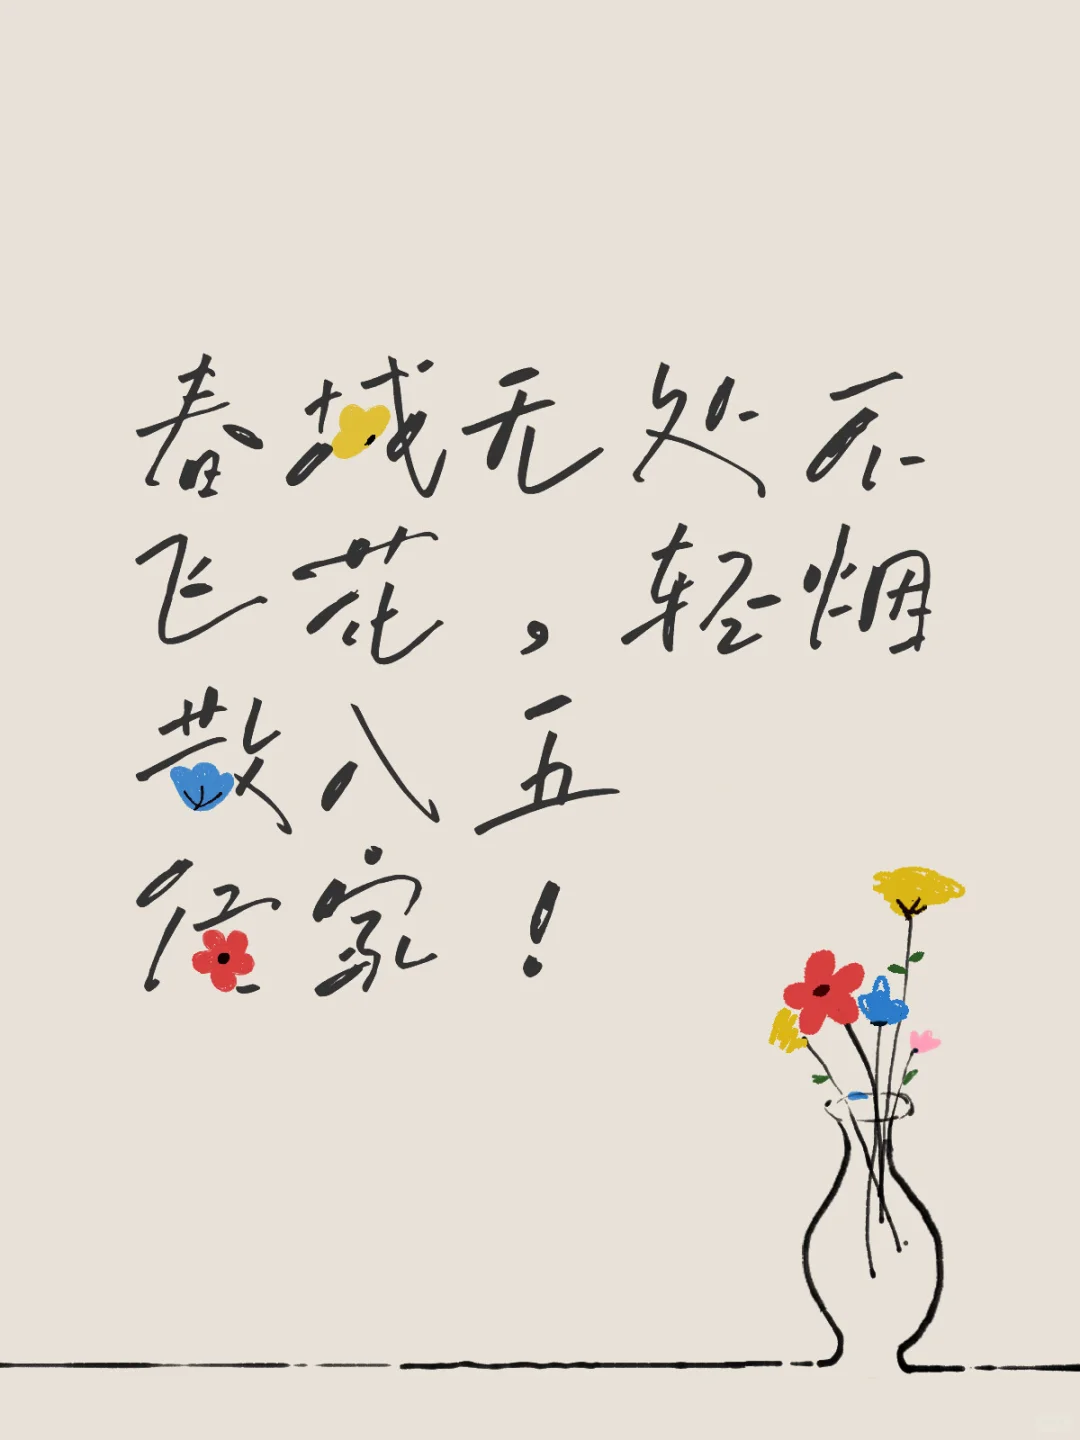 春城无处不
飞花，轻烟
散入五
侯家！